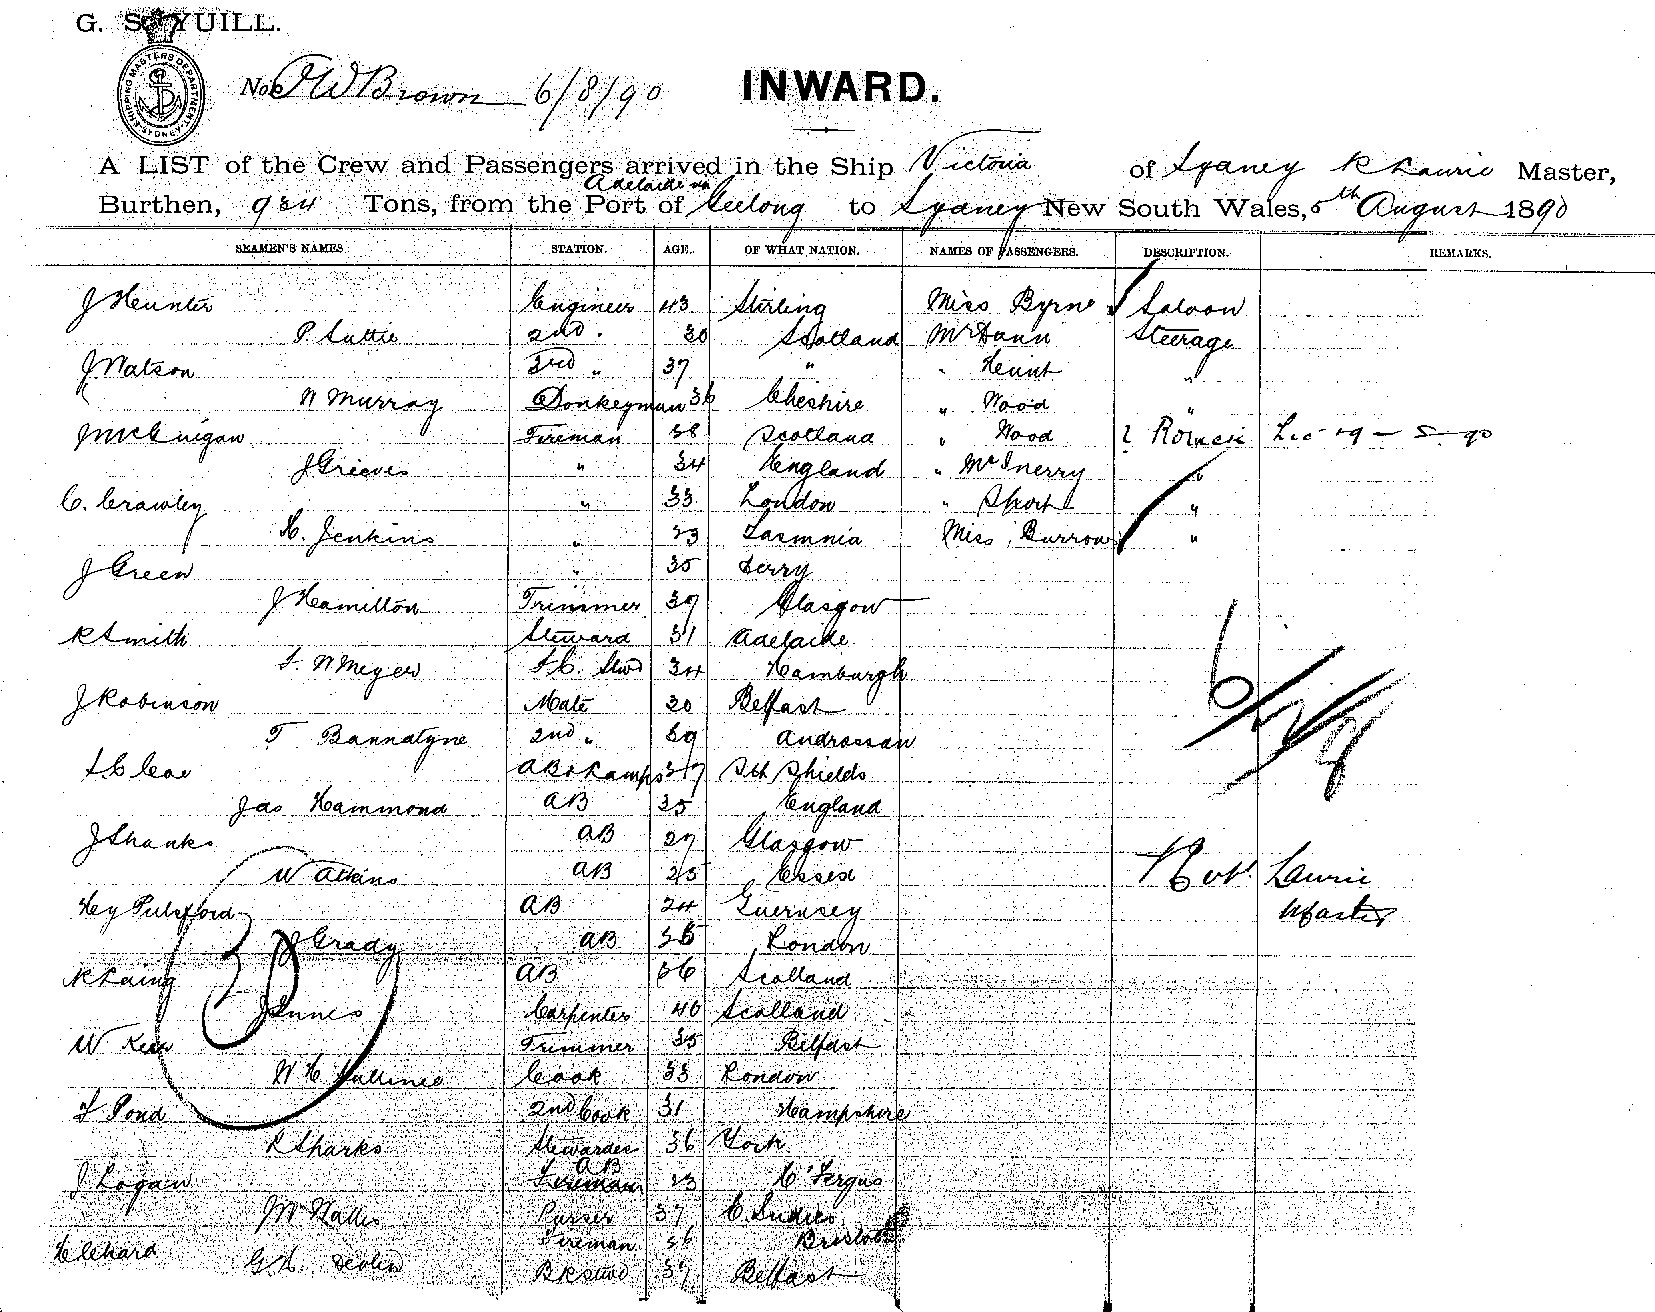 G. S. YUILL.
SHIPPING MASTERS DEPARTMENT SYDNEY
No. J W Brown 6/8/90 INWARD.
A LIST of the Crew and Passengers arrived in the Ship Victoria of Sydney R Laurie Master,
Adelaide via
Burthen, 984 Tons, from the Port of Geelong to Sydney New South Wales, 5th August 1890
SEAMEN'S NAMES STATION. AGE. OF WHAT NATION. NAMES OF PASSENGERS. DESCRIPTION. REMARKS.
J Hunter Engineer 43 Stirling Miss Byrne Saloon
P. Suttie 2nd " 30 Scotland Mr Dunn Steerage
J Watson 3rd " 37 " " Hunt "
W Murray Donkeyman 36 Cheshire " Wood "
J McGuigan Fireman 38 Scotland " Wood
J Grieves " 34 England " McInerry "
C. Crawley " 33 London " Short "
H. Jenkins " 23 Tasmnia Miss Burrow "
J Green " 35 Derry
J Hamilton Trimmer 39 Glasgow
R Smith Steward 31 Adelaide
F. W Meyer F.C. Stwd 34 Hamburgh
J Robinson Mate 30 Belfast
T Bannatyne 2nd " 39 Androssan
AB & Lamps 37 Sth Shields
Jas Hammond AB 25 England
J Shanks AB 27 Glasgow
W Atkins AB 25 Essex
Robt Laurie
Hy Pulsford AB 24 Guernsey Master
J Grady AB 35 London
R Laing AB 36 Scotland
30
J Innes Carpenter 40 Scotland
W Keer Trimmer 35 Belfast
W H Cook 33 London
F Pond 2nd Cook 31 Hampshire
R Sharks Stewardes 36 York
AB
J Logan Fireman 23 C'Fergus
Purser 37 E. Indies
Fireman 36 Bristol
G H Devlin BKStwd 39 Belfast